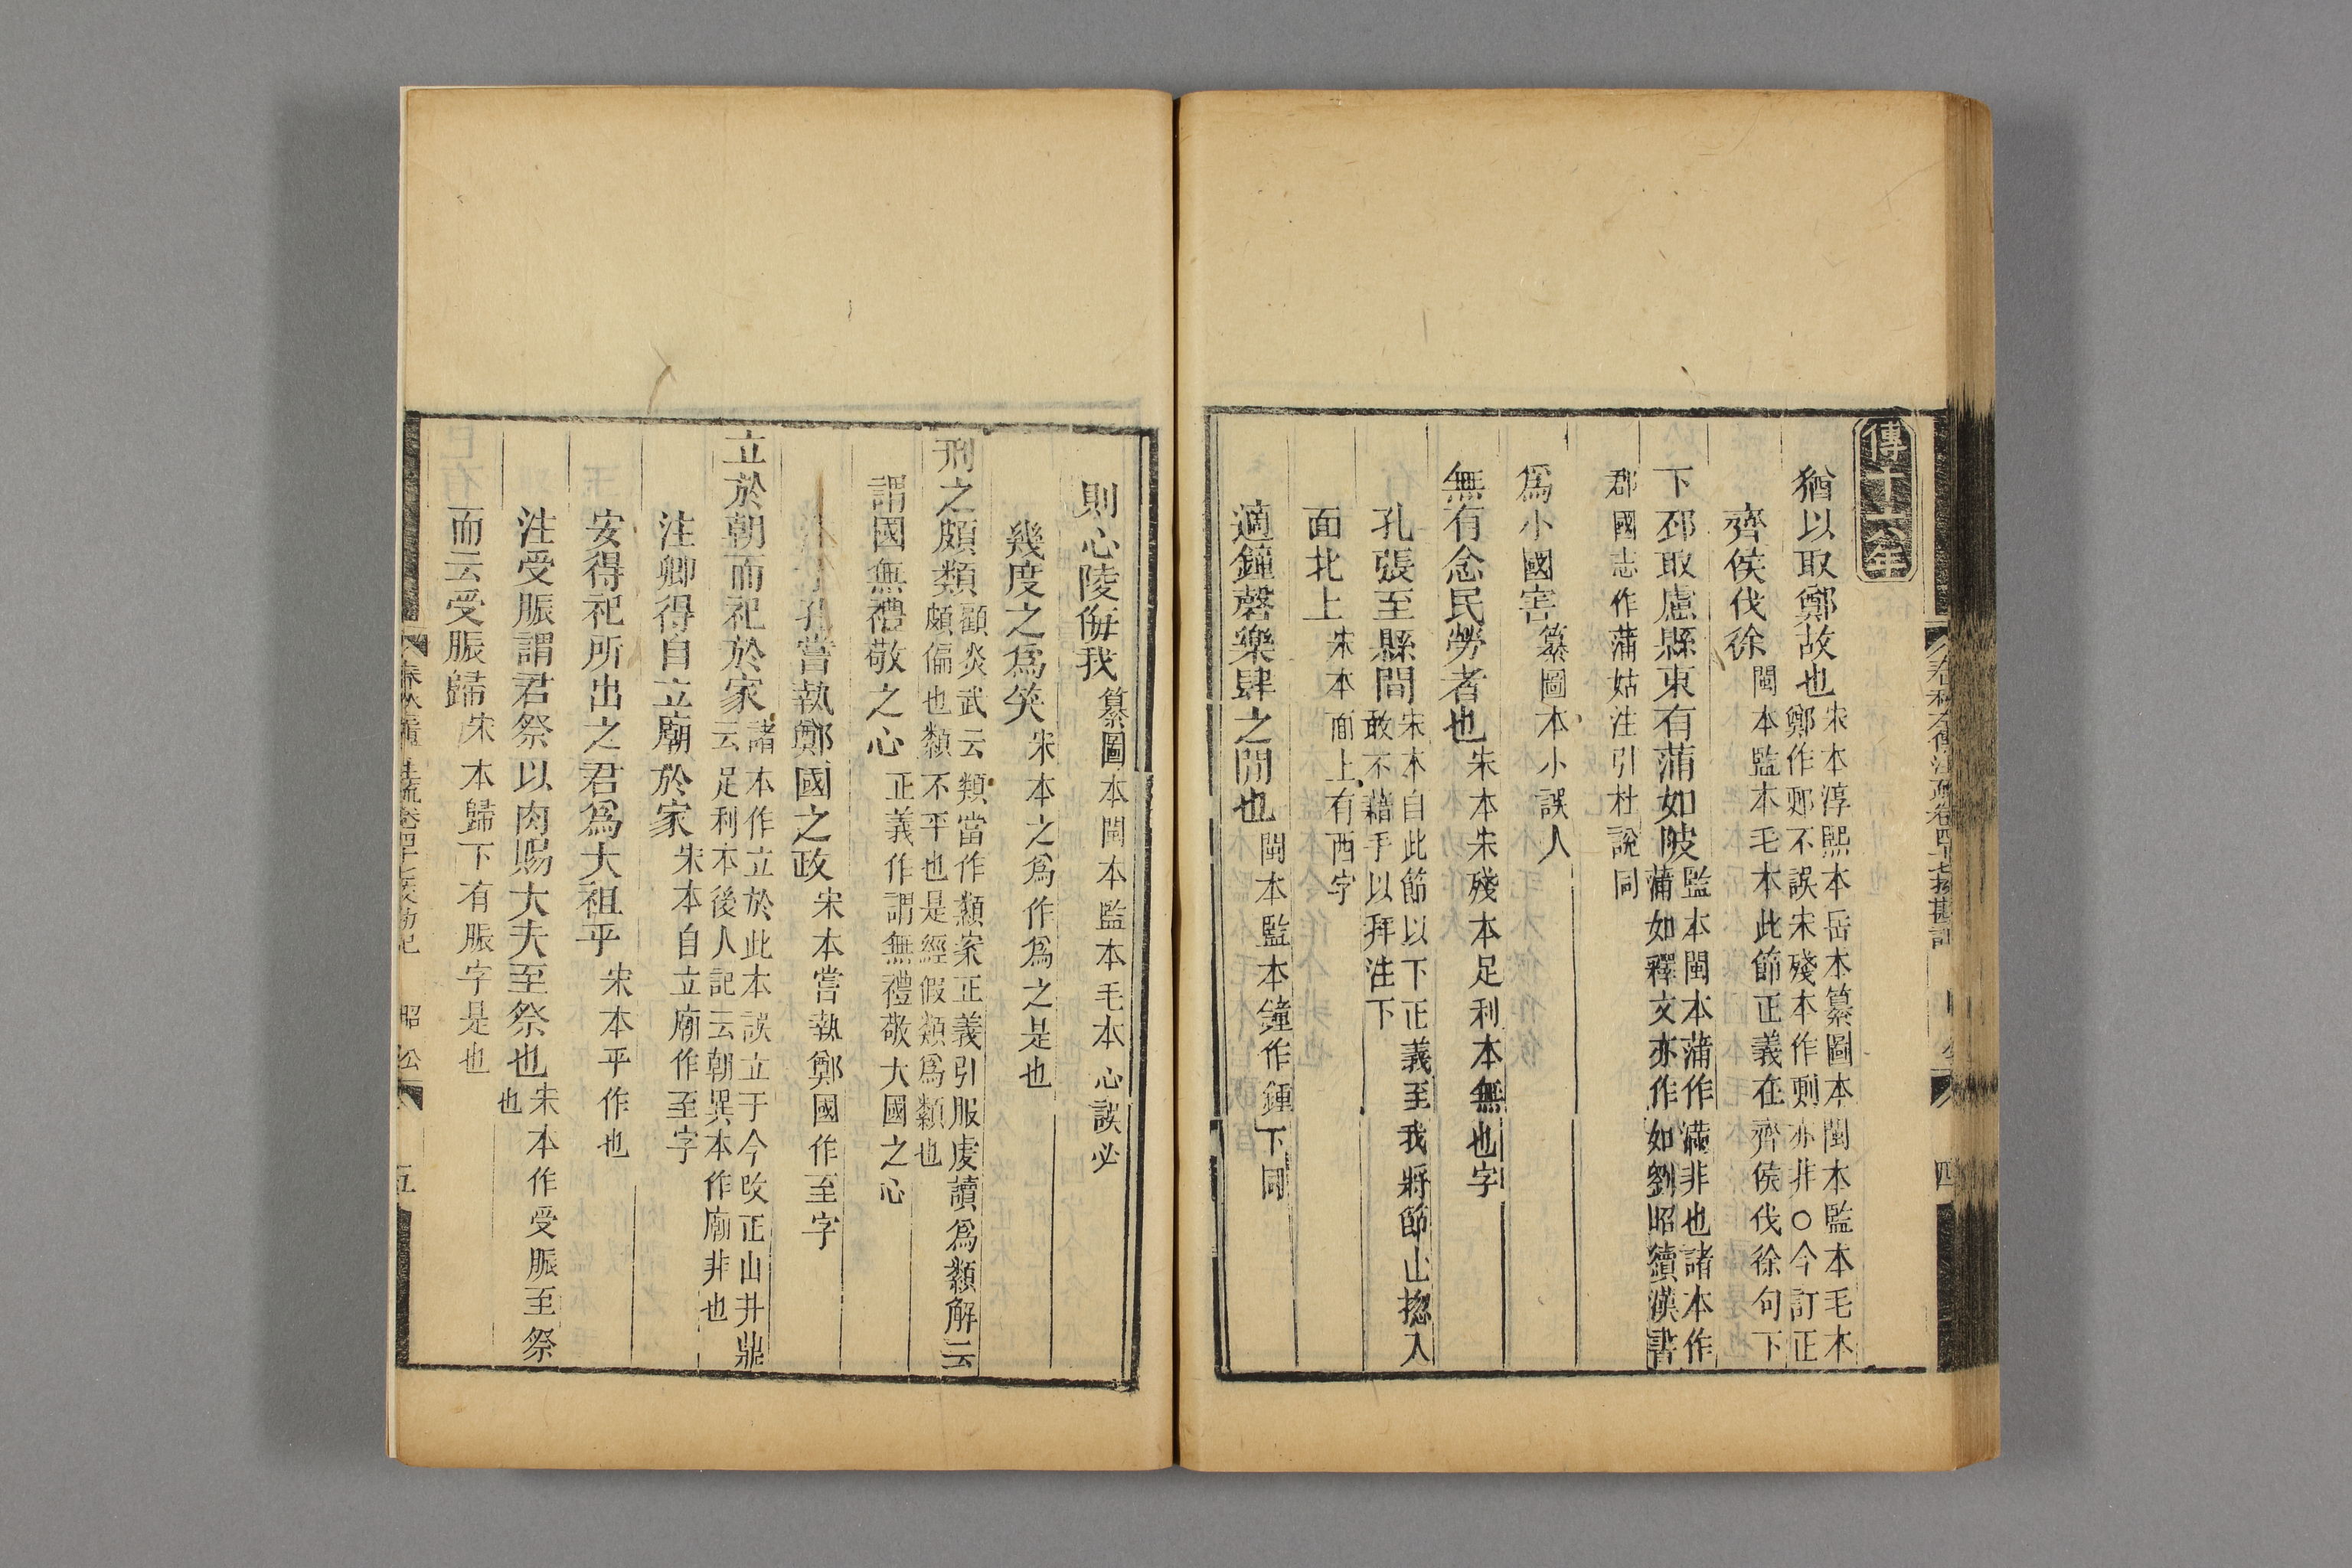 傳十六年
猶以取鄭故也宋本淳熙本岳本纂圖本閩本監本毛本鄭作郠不誤宋殘本作剻亦非○今訂正
齊侯伐徐閩本監本毛本此節正義在齊侯伐徐句下
下邳取慮縣東有蒲如陂監本閩本蒲作滿非也諸本作蒲如釋文亦作如劉昭續漢書
郡國志作蒲姑注引杜說同
爲小國害纂圖本小誤人
無有念民勞者也朱本宋殘本足利本無也字
孔張至縣間宋本自此節以下正義至我將節止揔入敢不藉手以拜注下
面北上宋本面上有西字
適鐘磬樂肆之閒也閩本監本鐘作鍾下同
則心陵侮我纂圖本閩本監本毛本心誤必
幾度之爲笑宋本之爲作爲之是也
刑之頗類顧炎武云類當作纇案正義引服虔讀爲纇解云頗偏也纇不平也是經假類爲纇也
謂國無禮敬之心正義作謂無禮敬大國之心
孔嘗執鄭國之政宋本嘗執鄭國作至字
立於朝而祀於家諸本作立於此本誤立于今改正山井鼎云足利本後人記云朝異本作廟非也
注卿得自立廟於家宋本自立廟作至字
安得祀所出之君爲大祖乎宋本乎作也
注受脤謂君祭以肉賜大夫至祭也宋本作受脤至祭也
而云受脤歸宋本歸下有脤字是也
春秋左傳注疏卷四十七挍勘記 昭公 五